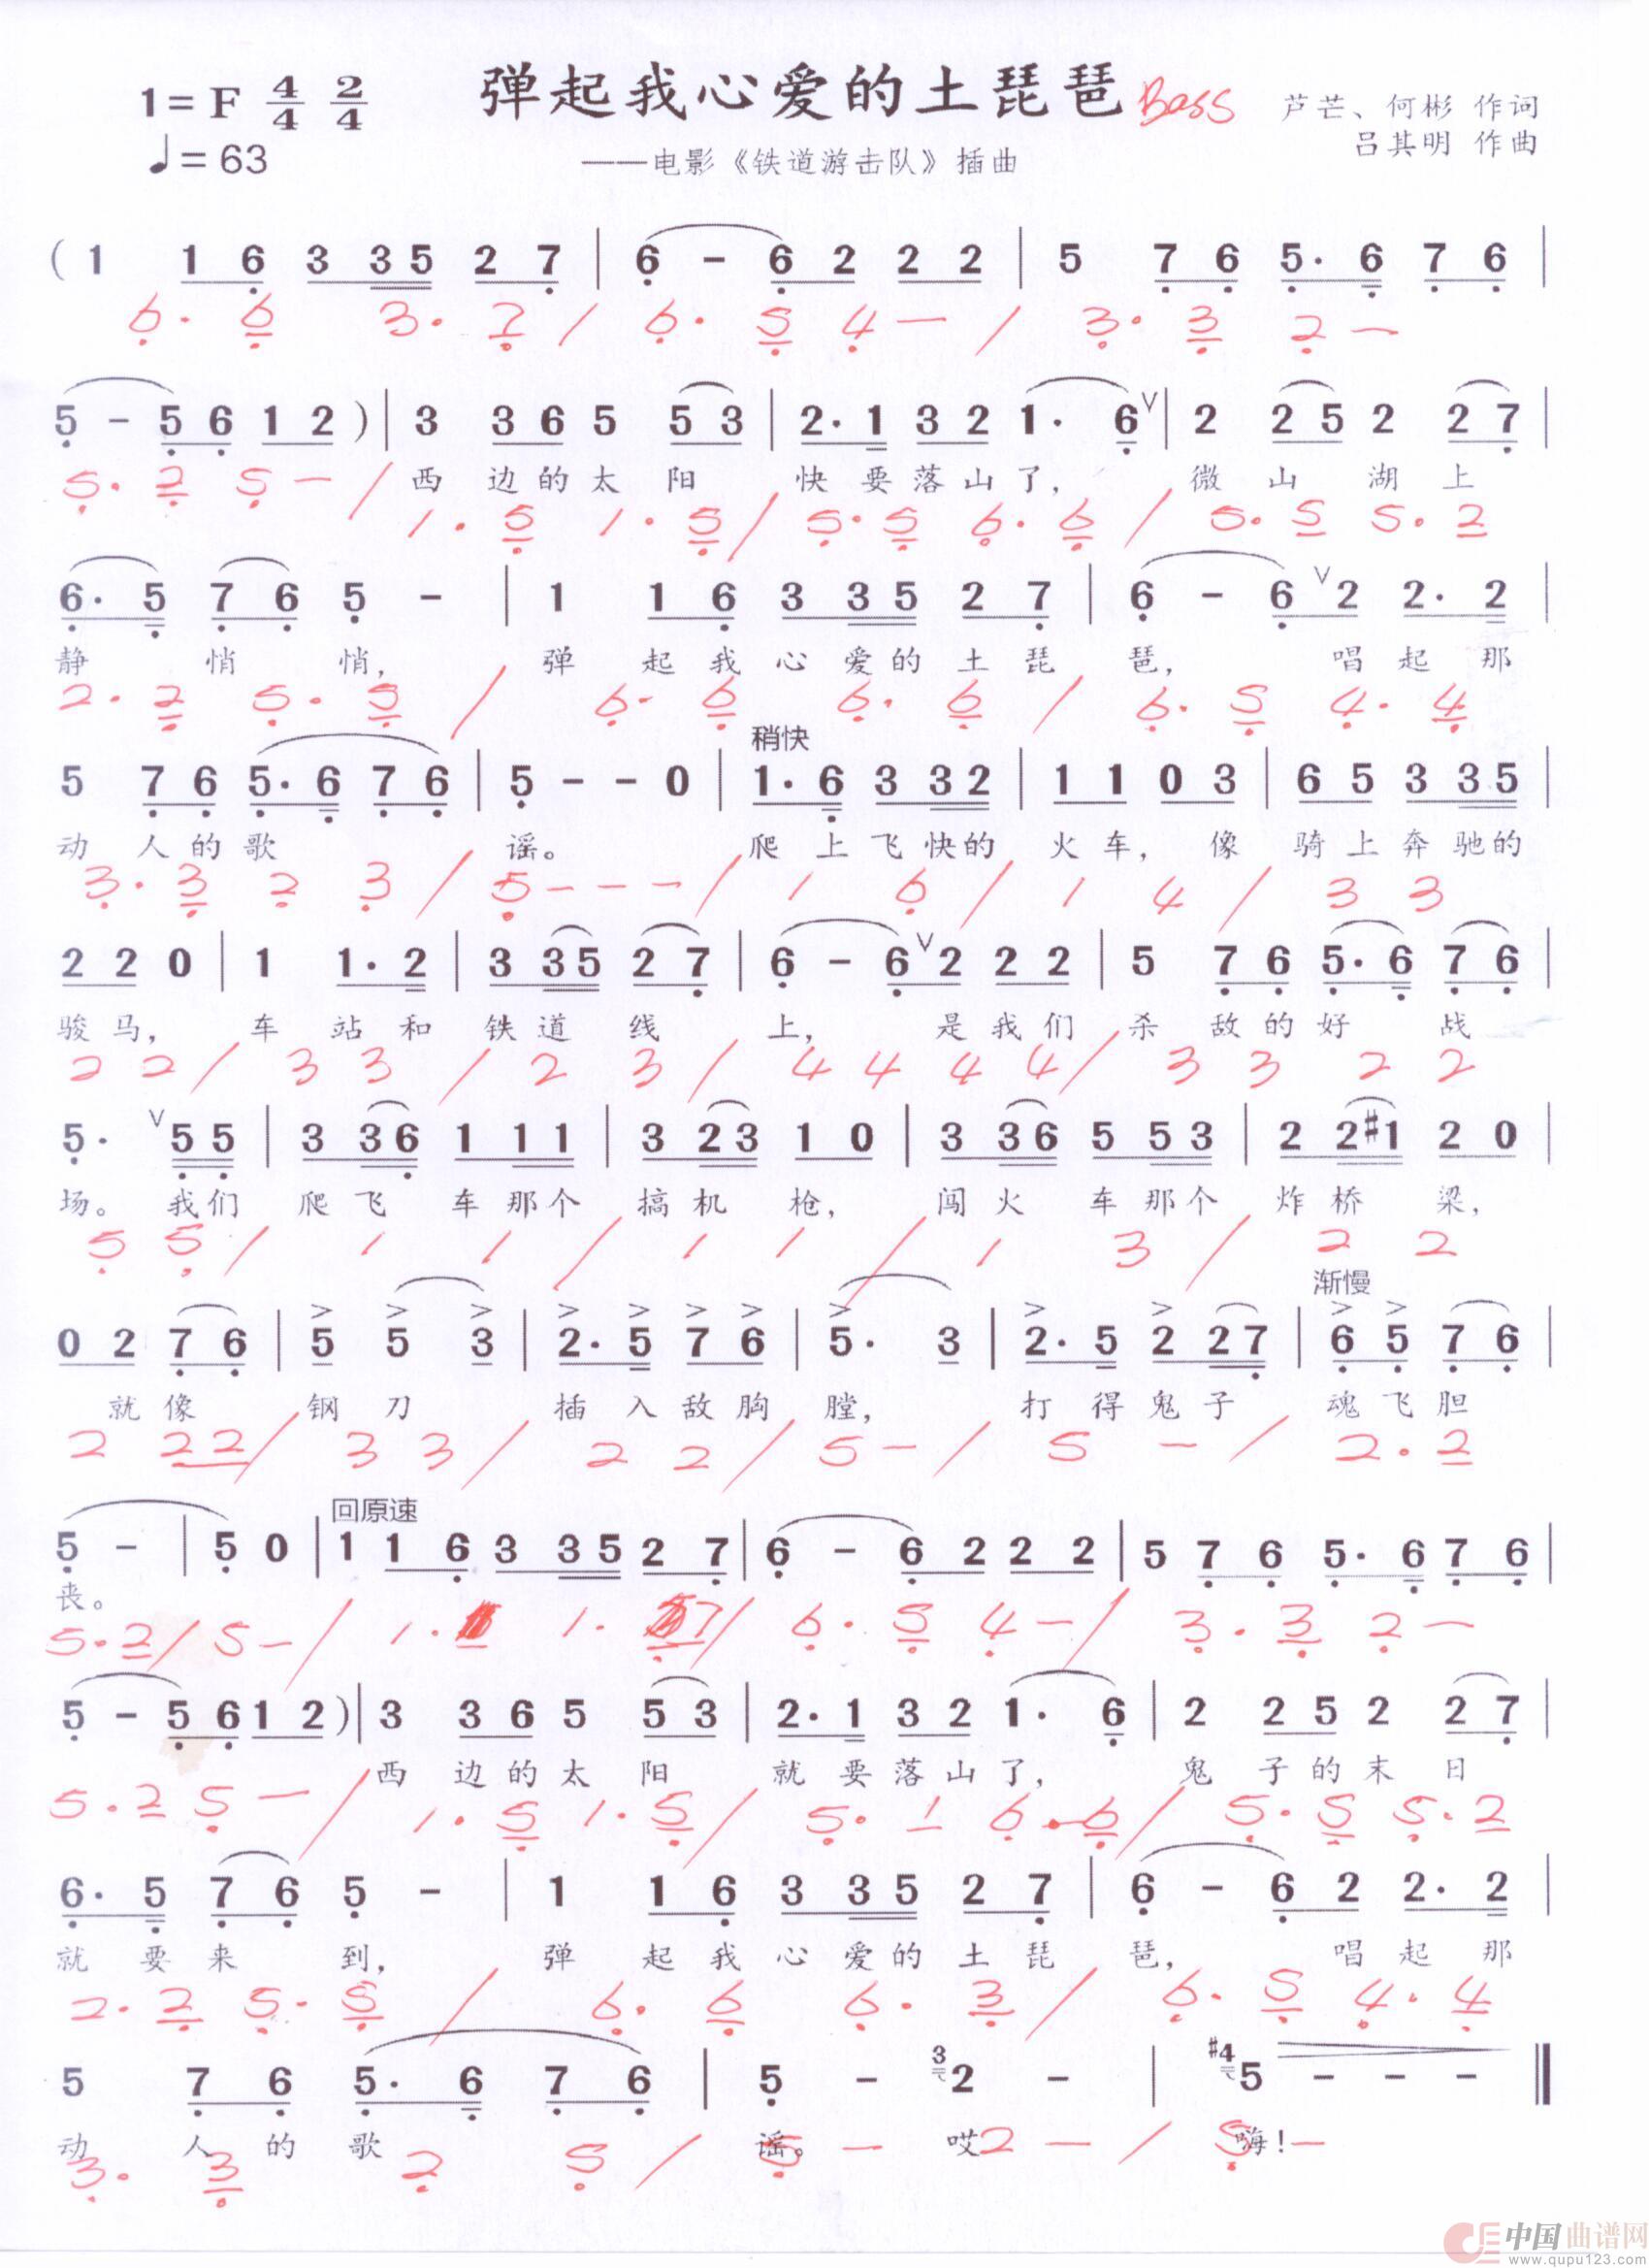 弹起我心爱的土琵琶 Bass
1=F 4/4 2/4
♩=63
——电影《铁道游击队》插曲
芦芒、何彬 作词
吕其明 作曲
( 1 1 6 3 3 5 2 7 | 6 - 6 2 2 2 | 5 7 6 5· 6 7 6 |
6· 6 3· 7 / 6· 5 4 — / 3· 3 2 —
5 - 5 6 1 2 ) | 3 3 6 5 5 3 | 2· 1 3 2 1· 6 ∨ | 2 2 5 2 2 7 |
西 边 的 太 阳 快 要 落 山 了, 微 山 湖 上
5· 2 5 — / 1· 5 1· 5 / 5· 5 6· 6 / 5· 5 5· 2
6· 5 7 6 5 - | 1 1 6 3 3 5 2 7 | 6 - 6 ∨ 2 2· 2 |
静 悄 悄, 弹 起 我 心 爱 的 土 琵 琶, 唱 起 那
2· 2 5· 5 / 6· 6 6· 6 / 6· 5 4· 4
稍快
5 7 6 5· 6 7 6 | 5 - - 0 | 1· 6 3 3 2 | 1 1 0 3 | 6 5 3 3 5 |
动 人 的 歌 谣。 爬 上 飞 快 的 火 车, 像 骑 上 奔 驰 的
3· 3 2 3 / 5 - - - / 1 6 / 1 4 / 3 3
2 2 0 | 1 1· 2 | 3 3 5 2 7 | 6 - 6 ∨ 2 2 2 | 5 7 6 5· 6 7 6 |
骏 马, 车 站 和 铁 道 线 上, 是 我 们 杀 敌 的 好 战
2 2 / 3 3 / 2 3 / 4 4 4 4 / 3 3 2 2
5· ∨ 5 5 | 3 3 6 1 1 1 | 3 2 3 1 0 | 3 3 6 5 5 3 | 2 2 #1 2 0 |
场。 我 们 爬 飞 车 那 个 搞 机 枪, 闯 火 车 那 个 炸 桥 梁,
5 5 / 1 1 / 1 1 / 1 3 / 2 2
渐慢
0 2 7 6 | 5 5 3 | 2· 5 7 6 | 5· 3 | 2· 5 2 2 7 | 6 5 7 6 |
就 像 钢 刀 插 入 敌 胸 膛, 打 得 鬼 子 魂 飞 胆
2 2 2 / 3 3 / 2 2 / 5 — / 5 — / 2· 2
回原速
5 - | 5 0 | 1 1 6 3 3 5 2 7 | 6 - 6 2 2 2 | 5 7 6 5· 6 7 6 |
丧。
5· 2 / 5 — / 1· 1· 7 / 6· 5 4 — / 3· 3 2 —
5 - 5 6 1 2 ) | 3 3 6 5 5 3 | 2· 1 3 2 1· 6 | 2 2 5 2 2 7 |
西 边 的 太 阳 就 要 落 山 了, 鬼 子 的 末 日
5· 2 5 — / 1· 5 1· 5 / 5· 1 6· 6 / 5· 5 5· 2
6· 5 7 6 5 - | 1 1 6 3 3 5 2 7 | 6 - 6 2 2· 2 |
就 要 来 到, 弹 起 我 心 爱 的 土 琵 琶, 唱 起 那
2· 2 5· 5 / 6· 6 6· 3 / 6· 5 4· 4
5 7 6 5· 6 7 6 | 5 - 3 2 - | #4 5 - - - ‖
动 人 的 歌 谣。 哎 嗨!
3· 3 2 5 / 5 — 2 — / 5 —
中国曲谱网
www.qupu123.com